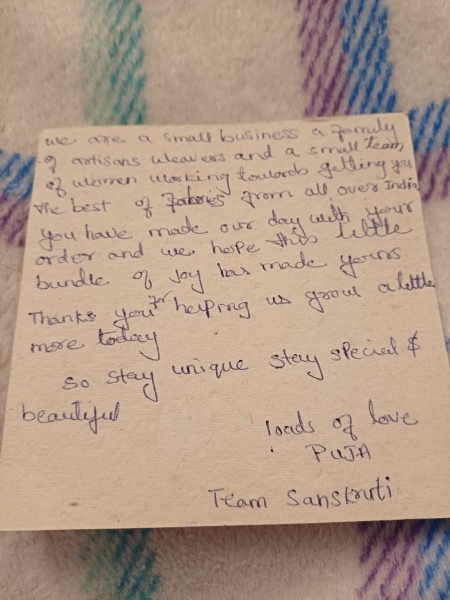 we are a small business a family
of artisans weavers and a small team
of women working towards getting you
the best of fabries from all over India
you have made our day with your
order and we hope this little
bundle of joy has made yours
Thanks you for helping us grow a little
more today
so stay unique stay special &
beautiful
loads of love
PUJA
Team Sanskruti